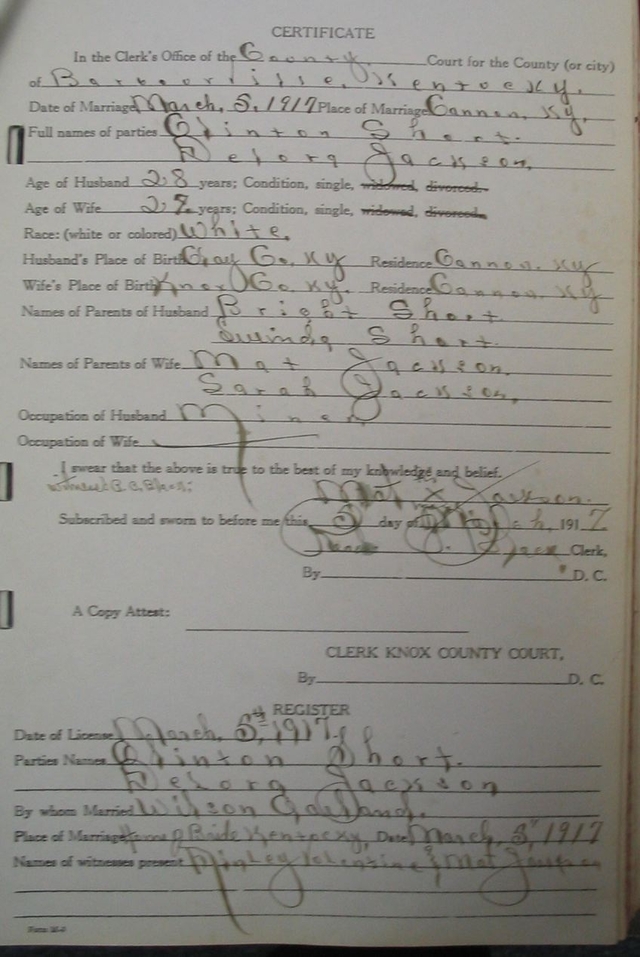 CERTIFICATE
In the Clerk's Office of the County Court for the County (or city)
of Barbourville, Kentucky.
Date of Marriage March, 5, 1917 Place of Marriage Cannon, Ky.
Full names of parties Clinton Short.
Delora Jackson,
Age of Husband 28 years; Condition, single, widowed, divorced.
Age of Wife 27 years; Condition, single, widowed, divorced.
Race: (white or colored) White.
Husband's Place of Birth Clay Co, Ky Residence Cannon. Ky
Wife's Place of Birth Knox Co, Ky. Residence Cannon, Ky
Names of Parents of Husband Bright Short
Short.
Names of Parents of Wife Mat Jackson,
Sarah Jackson,
Occupation of Husband Miner
Occupation of Wife
I swear that the above is true to the best of my knowledge and belief.
Mat X Jackson.
Subscribed and sworn to before me this 5 day of March, 1917
Clerk,
By D. C.
A Copy Attest:
CLERK KNOX COUNTY COURT,
By D. C.
REGISTER
Date of License March, 5th, 1917.
Parties Names Clinton Short.
Delora Jackson
By whom Married Wilson
Place of Marriage Bride Kentucky, Date March, 5, 1917
Names of witnesses present & Mat Jackson